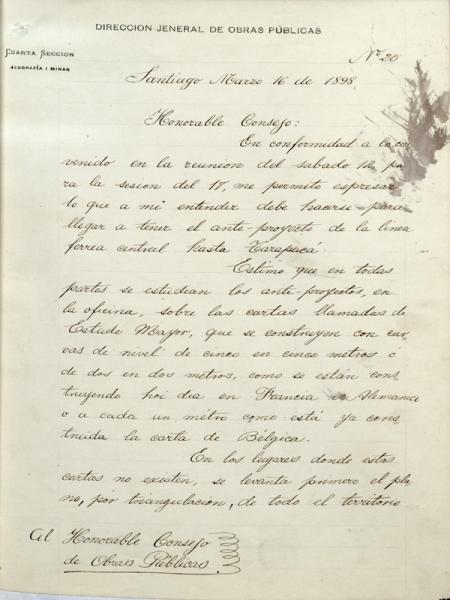 DIRECCION JENERAL DE OBRAS PÚBLICAS
CUARTA SECCION
JEOGRAFÍA I MINAS
Nº 20
Santiago Marzo 16 de 1898
Honorable Consejo:
En conformidad a lo con
venido en la reunion del sabado 12 pa
ra la sesion del 17, me permito espresar
lo que a mi entender debe hacerse para
llegar a tener el ante-proyecto de la linea
ferrea central hasta Tarapacá.
Estimo que en todas
partes se estudian los anti-proyectos, en
la oficina, sobre las cartas llamadas de
Estado Mayor, que se construyen con cur
vas de nivel de cinco en cinco metros o
de dos en dos metros, como se están cons
truyendo hoi dia en Francia o Alemania
o a cada un metro como está ya cons
truida la carta de Béljica.
En los lugares donde estas
cartas no existen, se levanta primero el pla
no, por triangulación, de todo el territorio
Al Honorable Consejo
de Obras Públicas.